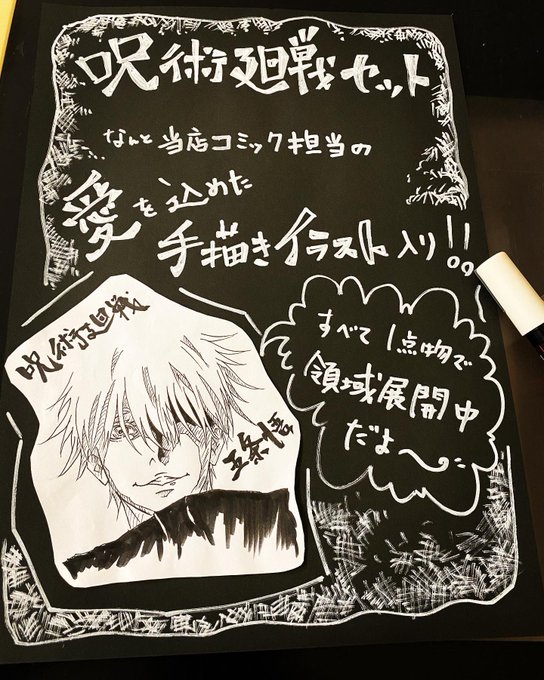 呪術廻戦セット
なんと当店コミック担当の
愛を込めた
手描きイラスト入り!!
呪術廻戦
五条悟
すべて1点物で
領域展開中
だよ〜